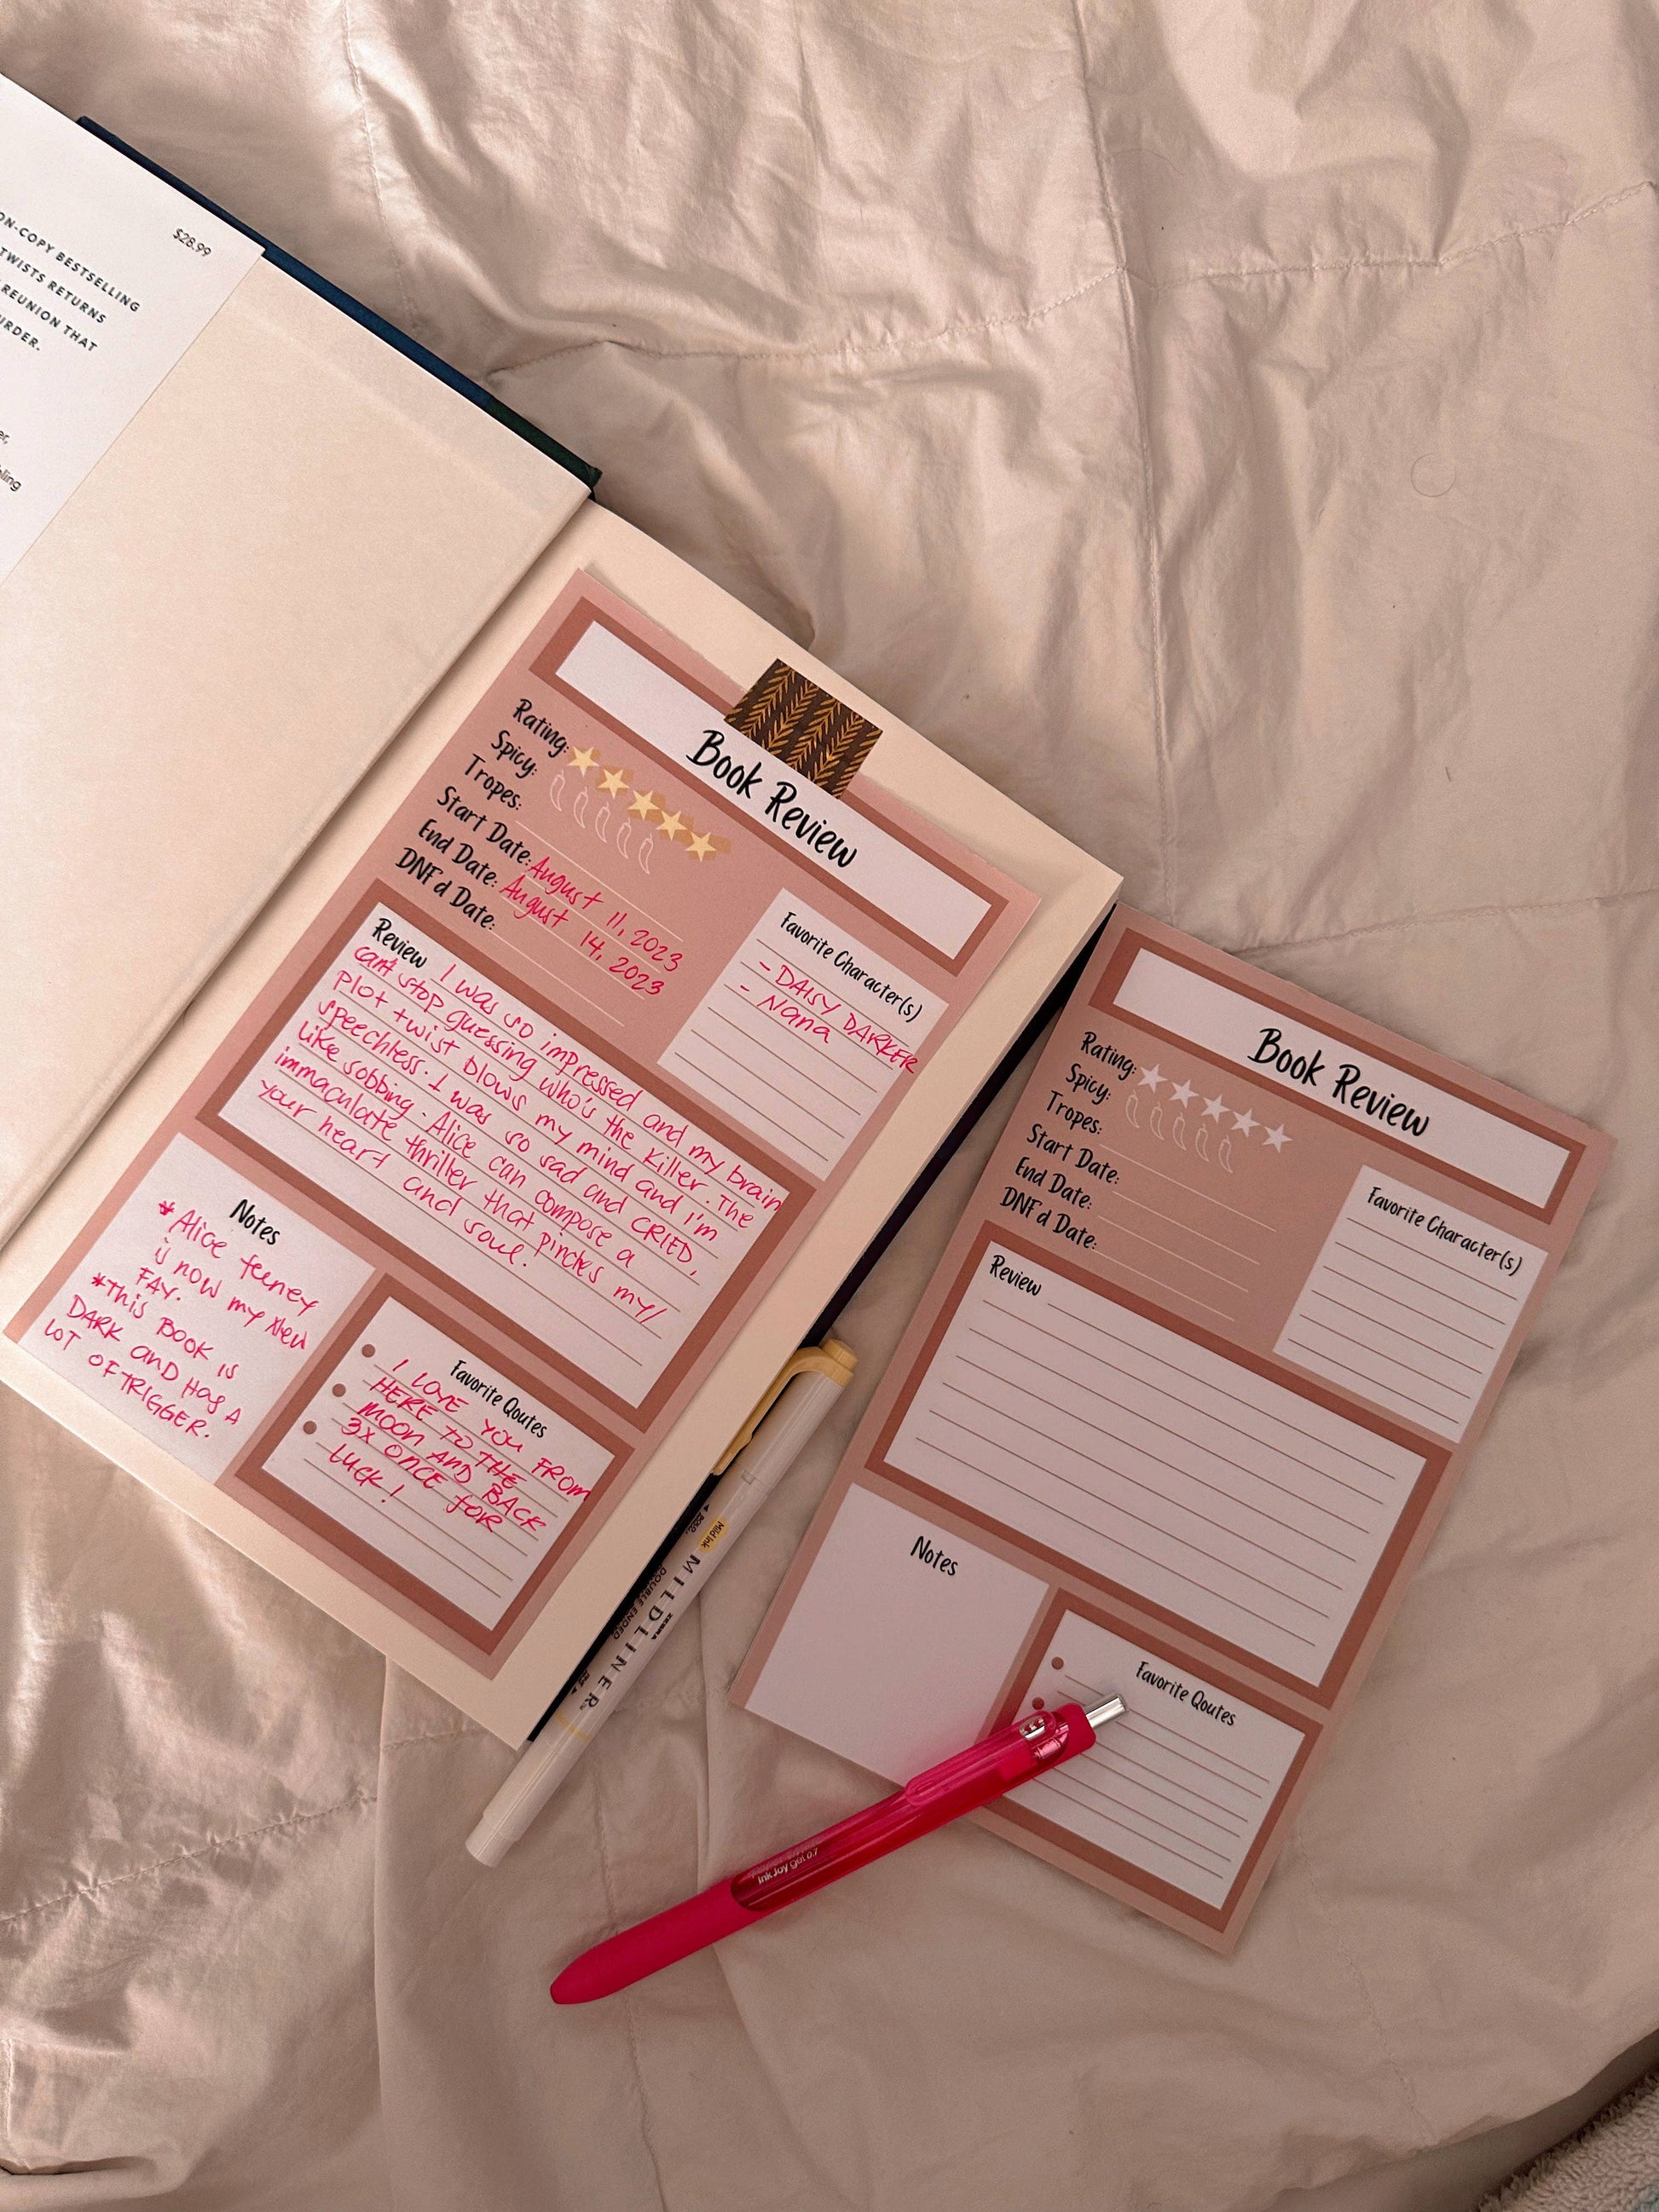 $28.99
ON-COPY BESTSELLING
TWISTS RETURNS
REUNION THAT
URDER.
er,
ling
Book Review
Rating:
Spicy:
Tropes:
Start Date: August 11, 2023
End Date: August 14, 2023
DNF'd Date:
Favorite Character(s)
- DAISY DARKER
- Nana
Review I was so impressed and my brain
can't stop guessing who's the killer. The
plot twist blows my mind and I'm
speechless. I was so sad and CRIED,
like sobbing. Alice can compose a
immaculate thriller that pinches my/
your heart and soul.
Notes
*Alice feeney
is now my new
FAV.
*This BOOK is
DARK and Has A
LOT OF TRIGGER.
Favorite Qoutes
I LOVE YOU FROM
HERE TO THE
MOON AND BACK
3X ONCE FOR
LUCK!
Book Review
Rating:
Spicy:
Tropes:
Start Date:
End Date:
DNF'd Date:
Favorite Character(s)
Review
Notes
Favorite Qoutes
Mild Ink
MILDLINER
ZEBRA
DOUBLE ENDED
InkJoy gel 0.7